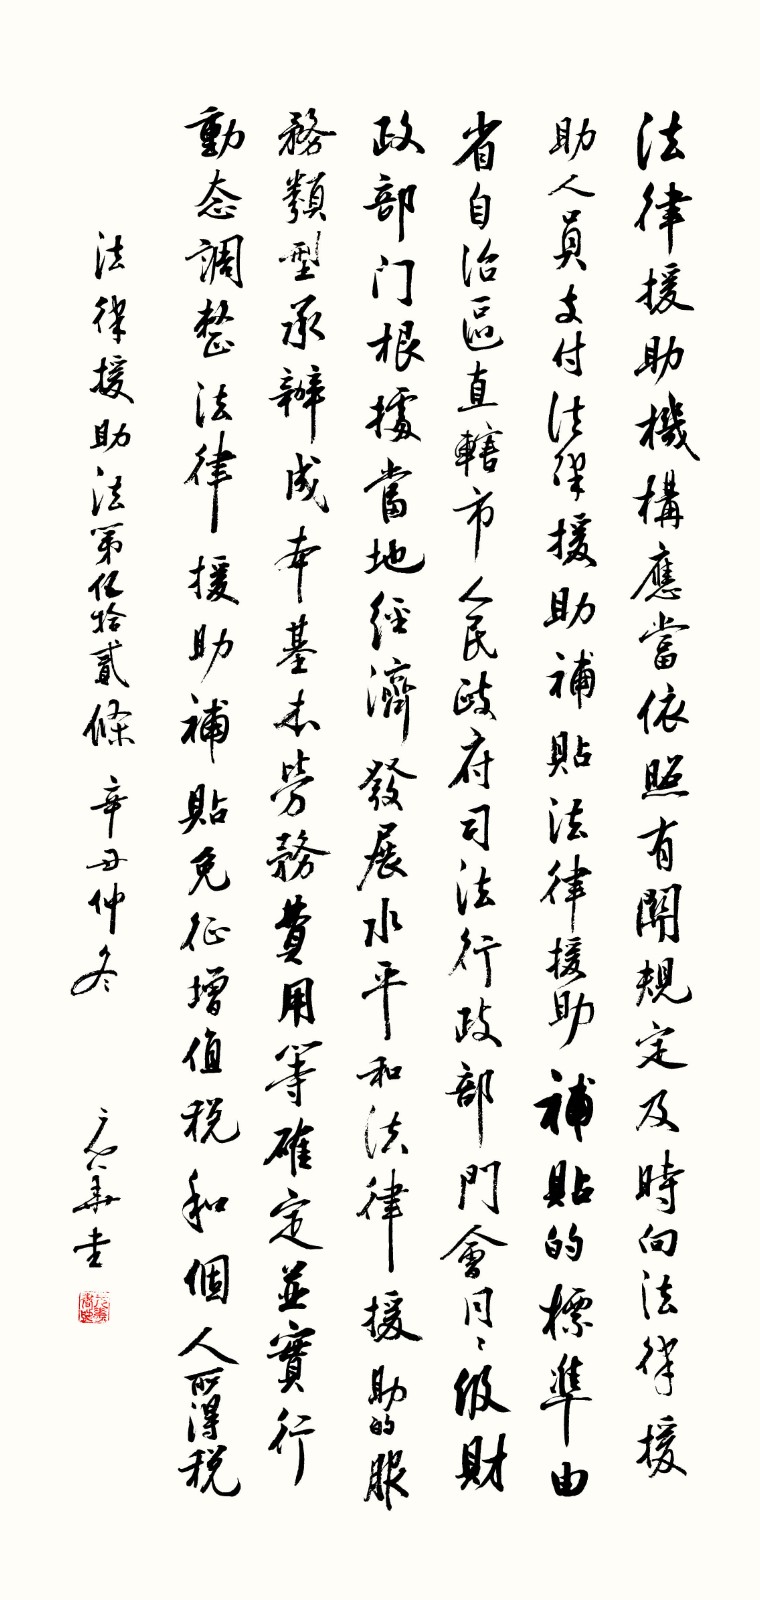 法律援助機構應當依照有関規定及時向法律援
助人員支付法律援助補貼法律援助補貼的標準由
省自治區直轄市人民政府司法行政部門會同〻級財
政部门根據當地經濟發展水平和法律援助的服
務類型承辦成本基本勞務費用等確定並實行
動态調整法律援助補貼免征增值税和個人所得税
法律援助法第伍拾貳條 辛丑仲冬